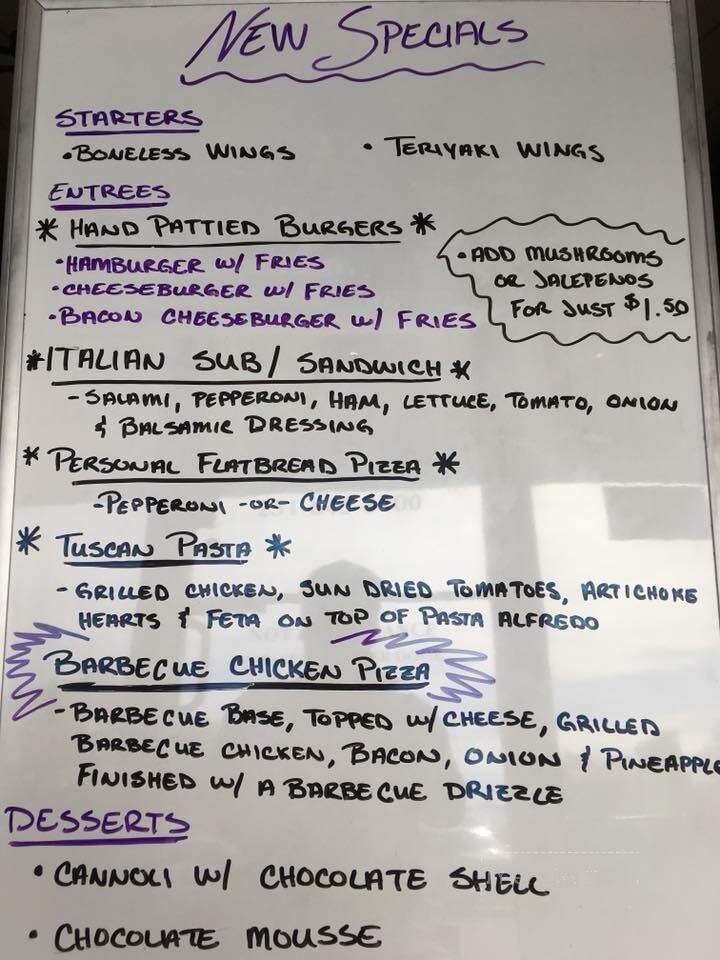 NEW SPECIALS
STARTERS
• BONELESS WINGS • TERIYAKI WINGS
ENTREES
* HAND PATTIED BURGERS *
• HAMBURGER W/ FRIES
• CHEESEBURGER W/ FRIES
• BACON CHEESEBURGER W/ FRIES
• ADD MUSHROOMS
OR JALEPENOS
FOR JUST $1.50
* ITALIAN SUB / SANDWICH *
- SALAMI, PEPPERONI, HAM, LETTUCE, TOMATO, ONION
& BALSAMIC DRESSING
* PERSONAL FLATBREAD PIZZA *
- PEPPERONI -OR- CHEESE
* TUSCAN PASTA *
- GRILLED CHICKEN, SUN DRIED TOMATOES, ARTICHOKE
HEARTS & FETA ON TOP OF PASTA ALFREDO
BARBECUE CHICKEN PIZZA
- BARBECUE BASE, TOPPED W/ CHEESE, GRILLED
BARBECUE CHICKEN, BACON, ONION & PINEAPPLE
FINISHED W/ A BARBECUE DRIZZLE
DESSERTS
• CANNOLI W/ CHOCOLATE SHELL
• CHOCOLATE MOUSSE